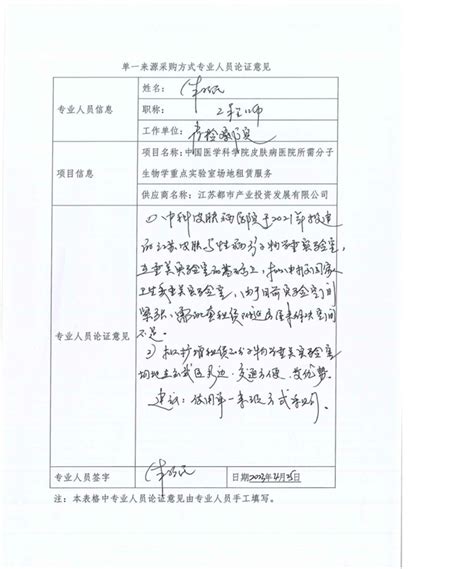 单一来源采购方式专业人员论证意见
专业人员信息
姓名：
职称：工程师
工作单位：
项目信息
项目名称：中国医学科学院皮肤病医院所需分子
生物学重点实验室场地租赁服务
供应商名称：江苏都市产业投资发展有限公司
专业人员论证意见
1) 中科皮肤病医院于2021年报建
的江苏皮肤与性病分子生物学重点实验室，
在重点实验室的基础上，拟申报国家
卫生重点实验室，由于目前实验室空间
紧张，需租赁附近房屋来解决空间
不足。
2) 拟扩增租赁的分子生物学重点实验室
场地在玄武区，交通方便，有优势。
建议：使用单一来源方式采购。
专业人员签字
日期2023年4月25日
注：本表格中专业人员论证意见由专业人员手工填写。